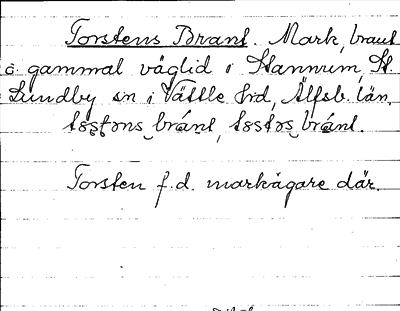 Torstens Brant. Mark, brant
å gammal väglid i Stannum, St.
Lundby sn i Vättle hd, Älfsb. län.
tɷstɷns bránt, tɷstɷs bránt.
Torsten f.d. markägare där.